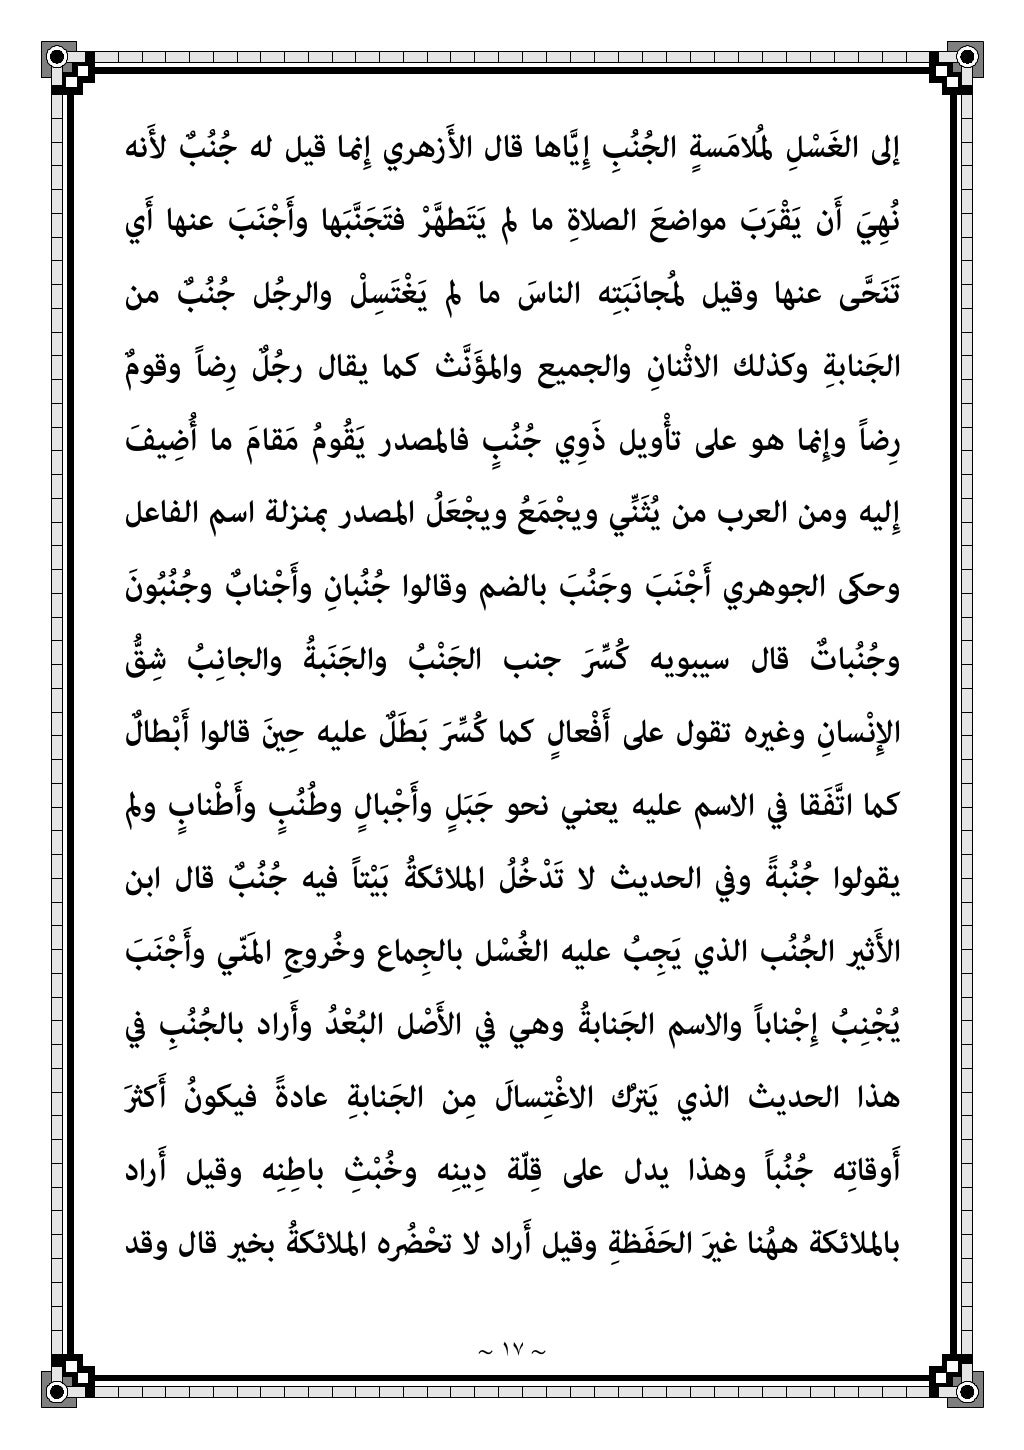 إلى الغَسْلِ لمُلامَسةٍ الجُنُبِ إِيَّاها قال الأَزهري إِنما قيل له جُنُبٌ لأَنه
نُهِيَ أَن يَقْرَبَ مواضعَ الصلاةِ ما لم يَتَطهَّرْ فتَجَنَّبَها وأَجْنَبَ عنها أَي
تَنَحَّى عنها وقيل لمُجانَبَتِه الناسَ ما لم يَغْتَسِلْ والرجُل جُنُبٌ من
الجَنابةِ وكذلك الاثْنانِ والجميع والمؤَنَّث كما يقال رجُلٌ رِضاً وقومٌ
رِضاً وإِنما هو على تأْويل ذَوِي جُنُبٍ فالمصدر يَقُومُ مَقامَ ما أُضِيفَ
إِليه ومن العرب من يُثَنِّي ويجْمَعُ ويجْعَلُ المصدر بمنزلة اسم الفاعل
وحكى الجوهري أَجْنَبَ وجَنُبَ بالضم وقالوا جُنُبانِ وأَجْنابٌ وجُنُبُونَ
وجُنُباتٌ قال سيبويه كُسِّرَ جنب الجَنْبُ والجَنَبةُ والجانِبُ شِقُّ
الإِنْسانِ وغيره تقول على أَفْعالٍ كما كُسِّرَ بَطَلٌ عليه حِينَ قالوا أَبْطالٌ
كما اتَّفَقا في الاسم عليه يعني نحو جَبَلٍ وأَجْبالٍ وطُنُبٍ وأَطْنابٍ ولم
يقولوا جُنُبةً وفي الحديث لا تَدْخُلُ الملائكةُ بَيْتاً فيه جُنُبٌ قال ابن
الأَثير الجُنُب الذي يَجِبُ عليه الغُسْل بالجِماع وخُروجِ المَنّي وأَجْنَبَ
يُجْنِبُ إِجْناباً والاسم الجَنابةُ وهي في الأَصْل البُعْدُ وأَراد بالجُنُبِ في
هذا الحديث الذي يَترُك الاغْتِسالَ مِن الجَنابةِ عادةً فيكونُ أَكثرَ
أَوقاتِه جُنُباً وهذا يدل على قِلّة دِينِه وخُبْثِ باطِنِه وقيل أَراد
بالملائكة ههُنا غيرَ الحَفَظةِ وقيل أَراد لا تحْضُره الملائكةُ بخير قال وقد
~ ١٧ ~